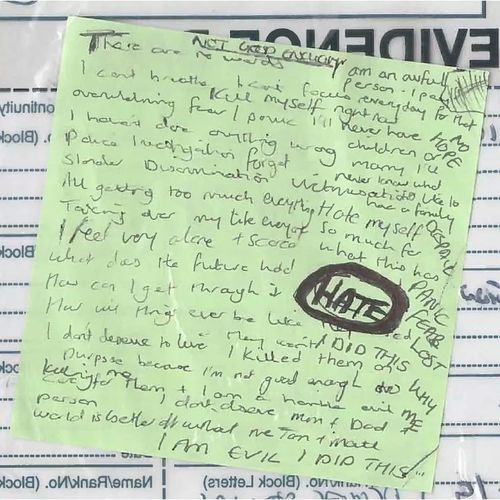 NOT GOOD ENOUGH
There are no words
I am an awful person. I pay
every day for that
I can't breathe I can't focus
Kill myself right now
overwhelming fear / panic I'll never have
NO HOPE
children or marry I'll
I haven't done anything wrong
never know what
Police investigation forget
it's like to have a family
Slander Discrimination Victimisation
All getting too much everything
Hate myself so much for
Taking over my life everyday
what this has
I feel very alone + scared
DESPAIR
PANIC
FEAR
LOST
What does the future hold
HATE
How can I get through it
How will things ever be like
I DID THIS
I don't deserve to live
I killed them on
WHY ME
purpose because I'm not good enough to
care for them + I am a horrible evil
person
I don't deserve mum + Dad +
world is better off without me
I AM EVIL I DID THIS
EVIDENCE
Continuity
(Block
(Block
Name/Rank/No. (Block
Name/Rank/No. (Block Letters)